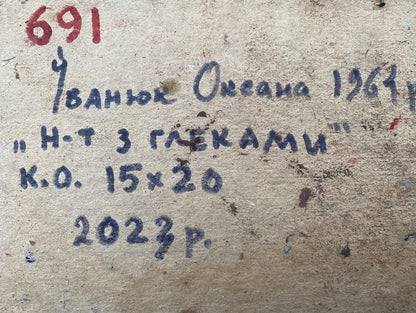 691
Іванюк Оксана 1964 р
„Н-Т З ГЛЕКАМИ"
К.О. 15х20
2023 р.